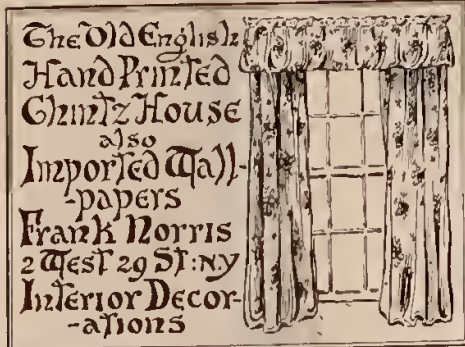 The Old English
Hand Printed
Chintz House
also
Imported Wall-
-papers
Frank Norris
2 West 29 St: N.Y
Interior Decor-
-ations